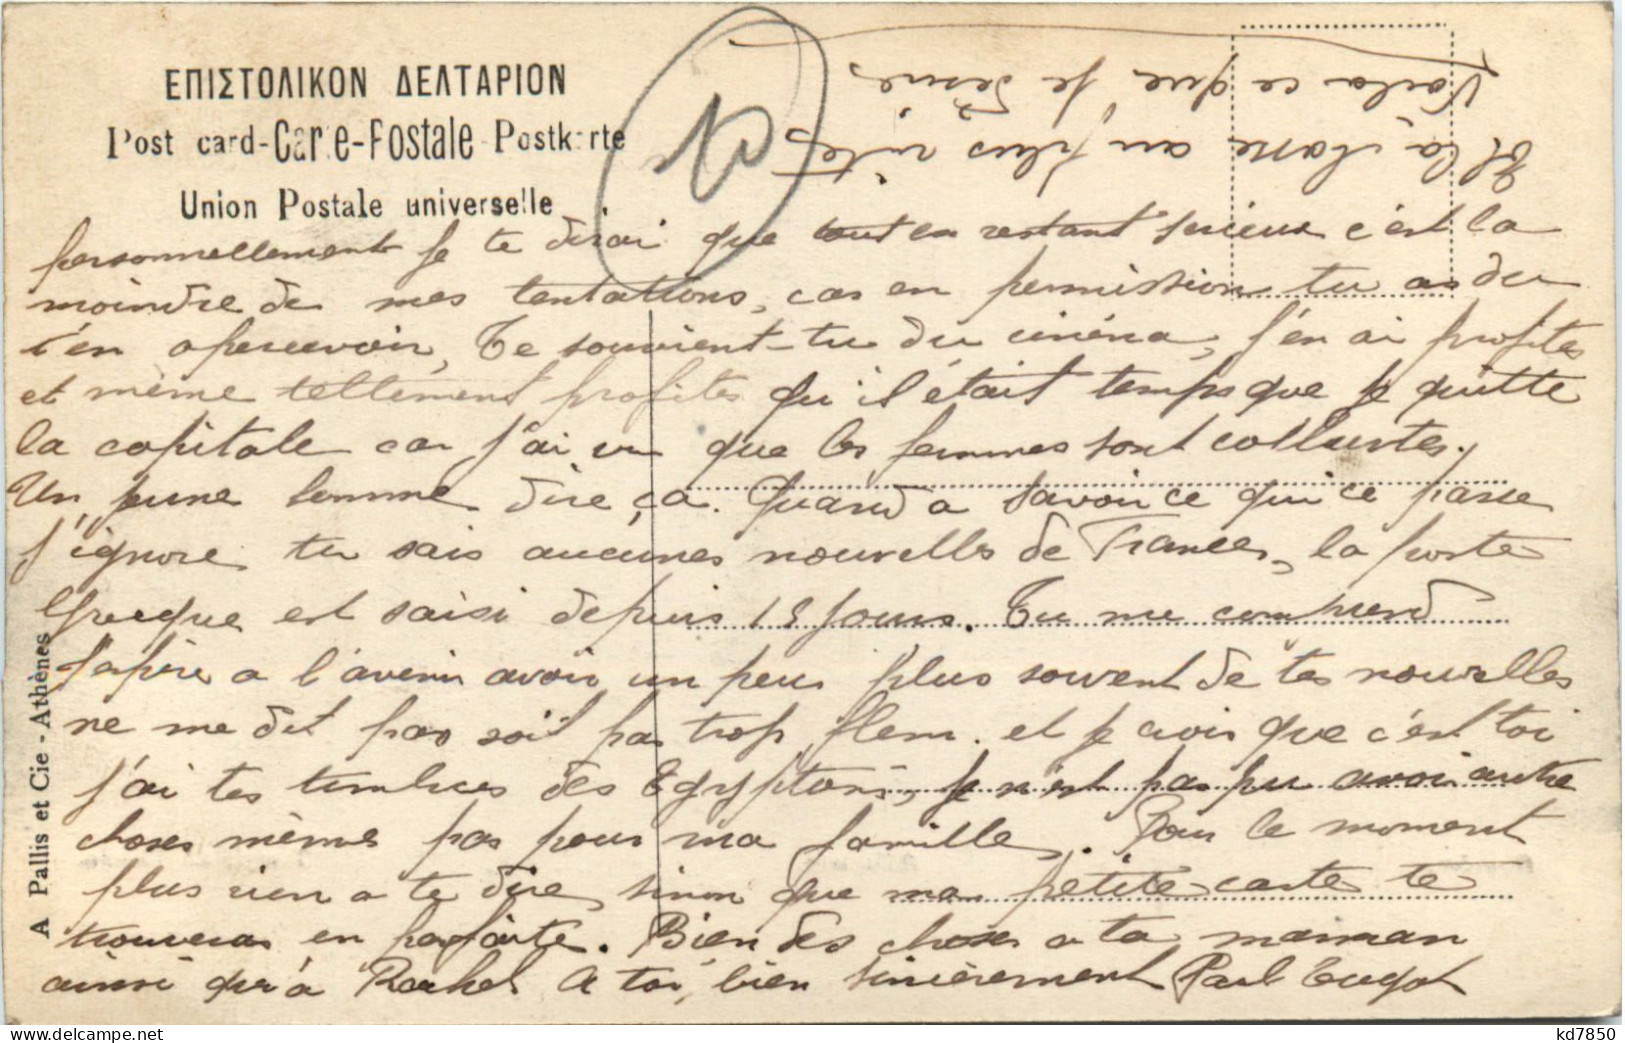 ΕΠΙΣΤΟΛΙΚΟΝ ΔΕΛΤΑΡΙΟΝ
Post card-Carte-Postale-Postkarte
Union Postale universelle
A Pallis et Cie - Athènes
personnellement je te dirai que tout en restant serieux c'est la
moindre de mes tentations, car en permission tu as du
t'en apercevoir, Te souvient-tu du cinéma, j'en ai profites
et même tellement profites qu'il était temps que je quitte
la capitale car j'ai vu que les femmes sont
Un jeune homme dire ça. Quand a savoir ce qui ce passe
j'ignore tu sais aucunes nouvelles de France, la poste
Grecque est saisi depuis 15 jours. Tu me comprend
j'espère a l'avenir avoir un peu plus souvent de tes nouvelles
ne me dit pas soit pas trop flem. et je crois que c'est toi
j'ai tes timbres des je n'est pas pu avoir autre
choses même pas pour ma famille. Pour le moment
plus rien a te dire, sinon que ma petite carte te
trouveras en parfaite. Bien des choses a ta maman
ainsi qu'a Rachel A toi, bien sincèrement Paul Tugot
Et la classe au plus vites
Voila ce que je
kd7850